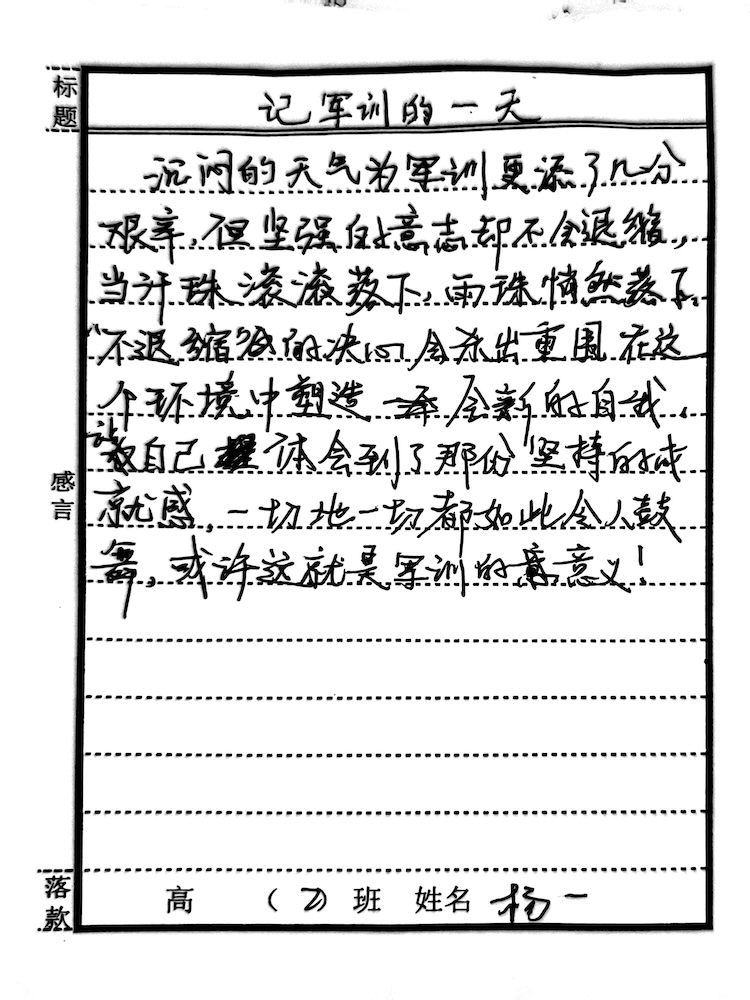 标题
记军训的一天
沉闷的天气为军训更添了几分
艰辛,但坚强的意志却不会退缩,
当汗珠滚滚落下,雨珠悄然落下,
"不退缩"的决心会杀出重围,在这
个环境中塑造全新的自我,
让自己体会到了那份坚持的成
就感,一切地一切都如此令人鼓
舞,或许这就是军训的意义!
感言
落款
高 (2)班 姓名 杨一